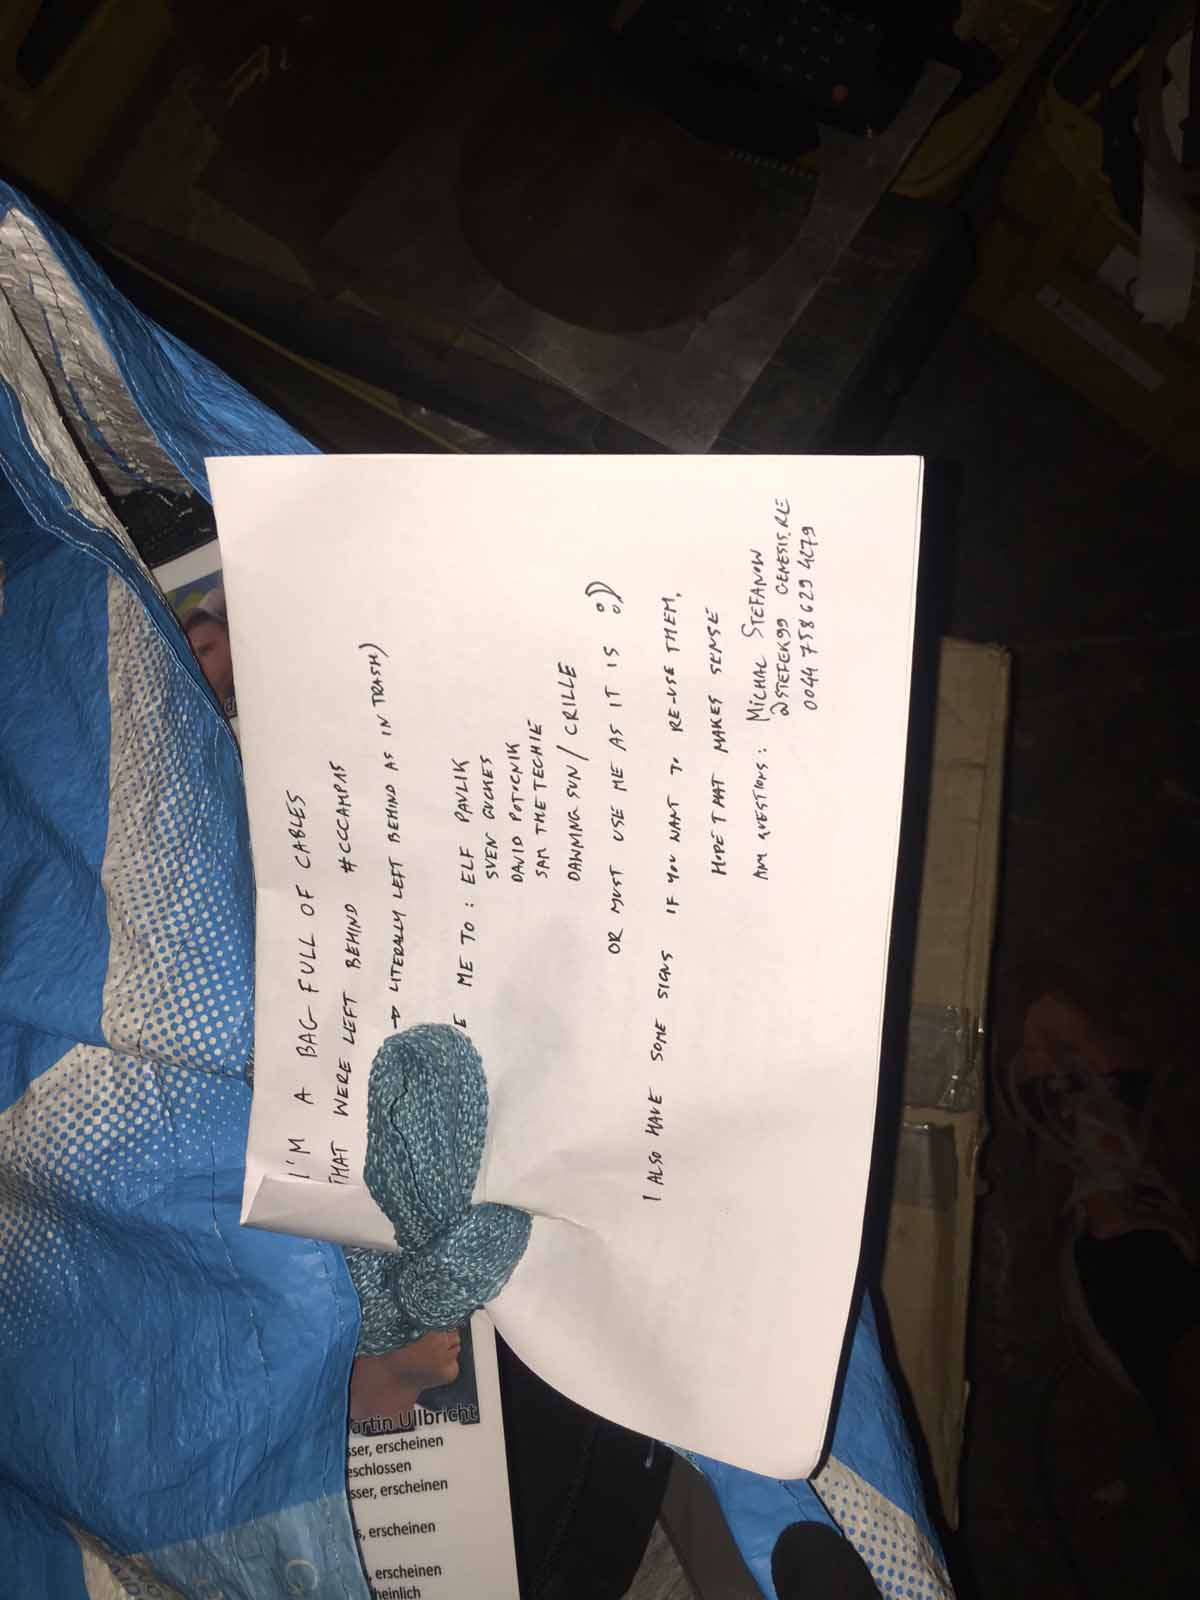 I'M A BAG FULL OF CABLES
THAT WERE LEFT BEHIND #CCCAMP15
→ LITERALLY LEFT BEHIND AS IN TRASH)
E ME TO: ELF PAVLIK
SVEN GUCKES
DAVID POTOCNIK
SAM THE TECHIE
DAWNING SUN / CRILLE
OR MUST USE ME AS IT IS :))
I ALSO HAVE SOME SIGNS IF YOU WANT TO RE-USE THEM,
HOPE THAT MAKES SENSE
ANY QUESTIONS: MICHAL STEFANOW
@STEFEK99 GENESIS.RE
0044 758 629 4279
artin Ullbricht
sser, erscheinen
eschlossen
sser, erscheinen
s, erscheinen
, erscheinen
heinlich